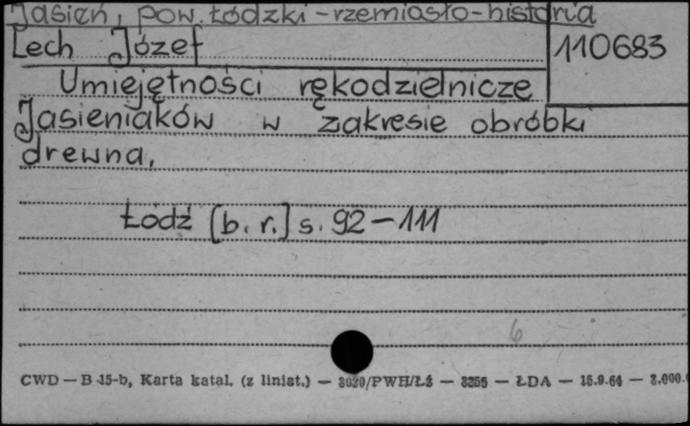 Jasień, pow. Łódzki - rzemiosło - historia
Lech Józef
110683
Umiejętności rękodzielnicze
Jasieniaków w zakresie obróbki
drewna,
Łódź [b. r.] s. 92 - 111
6
CWD — B 15-b, Karta katal. (z liniat.) — 3020/PWH/Łź — 3255 — ŁDA — 15.9.64 —